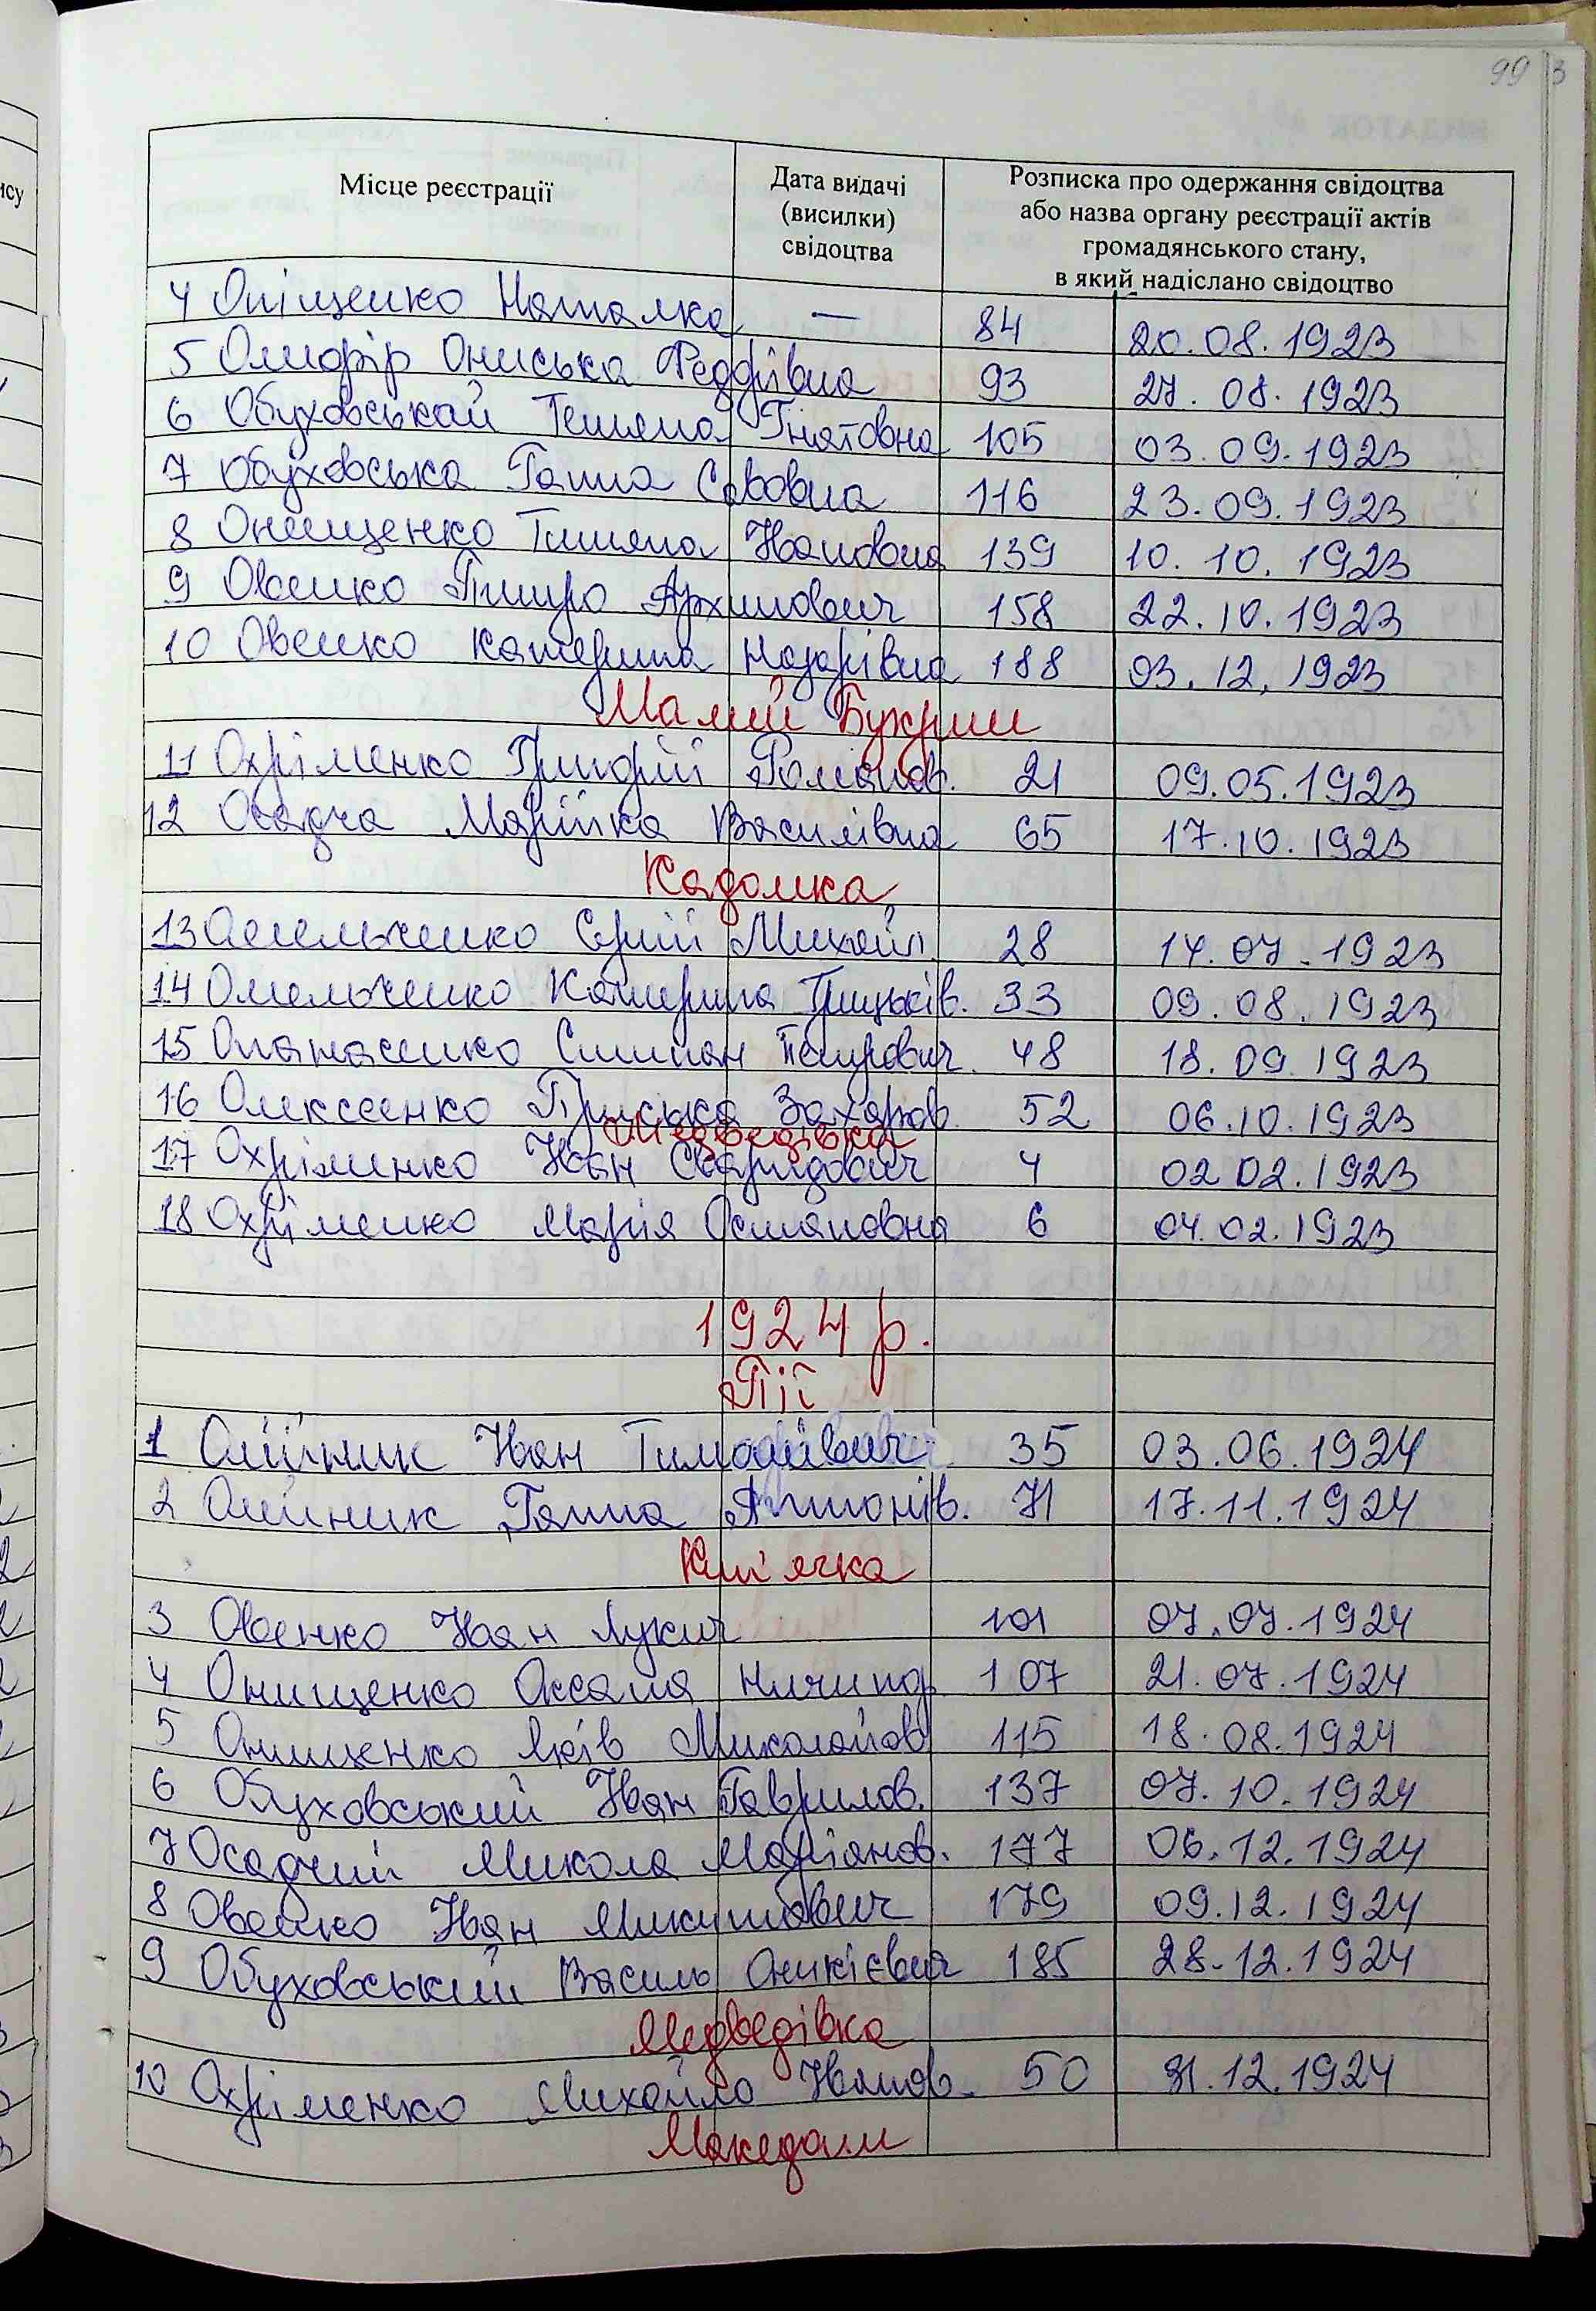 99 3
ису
Місце реєстрації
Дата видачі (висилки) свідоцтва
Розписка про одержання свідоцтва або назва органу реєстрації актів громадянського стану, в який надіслано свідоцтво
4 Оніщенко Наталка — 84 20.08.1923
5 Ониська Федорівна 93 27.08.1923
6 Обуховськай Тетяна Гнатовна 105 03.09.1923
7 Обуховська Ганна Савовна 116 23.09.1923
8 Онищенко Тетяна Ивановна 139 10.10.1923
9 Овсенко Петро Архипович 158 22.10.1923
10 Овенко Катерина Назарівна 188 03.12.1923
Малий Букрин
11 Охріменко Григорій Романов. 21 09.05.1923
12 Осадча Марійка Василівна 65 17.10.1923
Кадомка
13 Омельченко Сергій Михайл. 28 14.07.1923
14 Омельченко Катерина Грицьків. 33 09.08.1923
15 Опанасенко Степан Петрович. 48 18.09.1923
16 Олексеенко Пріська Захаров. 52 06.10.1923
Медведівка
17 Охріменко Иван Свиридович 4 02.02.1923
18 Охріменко Марія Остаповна 6 04.02.1923
1924 р.
Пії
1 Олійник Иван Тимофійвич 35 03.06.1924
2 Олійник Ганна Антонів. 71 17.11.1924
Кип'ячка
3 Овенко Иван Лукич 101 07.07.1924
4 Онищенко Оксана Ничипор. 107 21.07.1924
5 Онищенко Яків Миколайов 115 18.08.1924
6 Обуховський Иван Гаврилов. 137 07.10.1924
7 Осадчий Микола Маріанов. 177 06.12.1924
8 Овенко Иван Микитович 179 09.12.1924
9 Обуховський Василь Оникієвич 185 28.12.1924
Медведівка
10 Охріменко Михайло Иванов. 50 31.12.1924
Македони